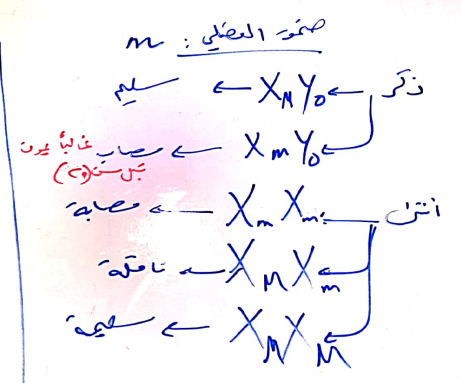 ضمور العضلي : m
ذكر ← X_M Y_0 ← سليم
X_m Y_0 ← مصاب غالباً يموت
قبل سن (20)
أنثى ← X_m X_m ← مصابة
X_M X_m ← ناقلة
X_M X_M ← سليمة